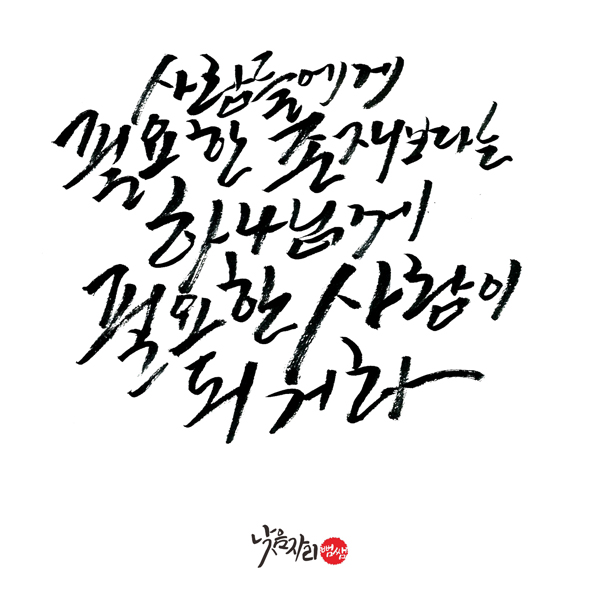 사람들에게
필요한 존재보다는
하나님께
필요한 사람이
되거라
낮음자리 뻠쌤